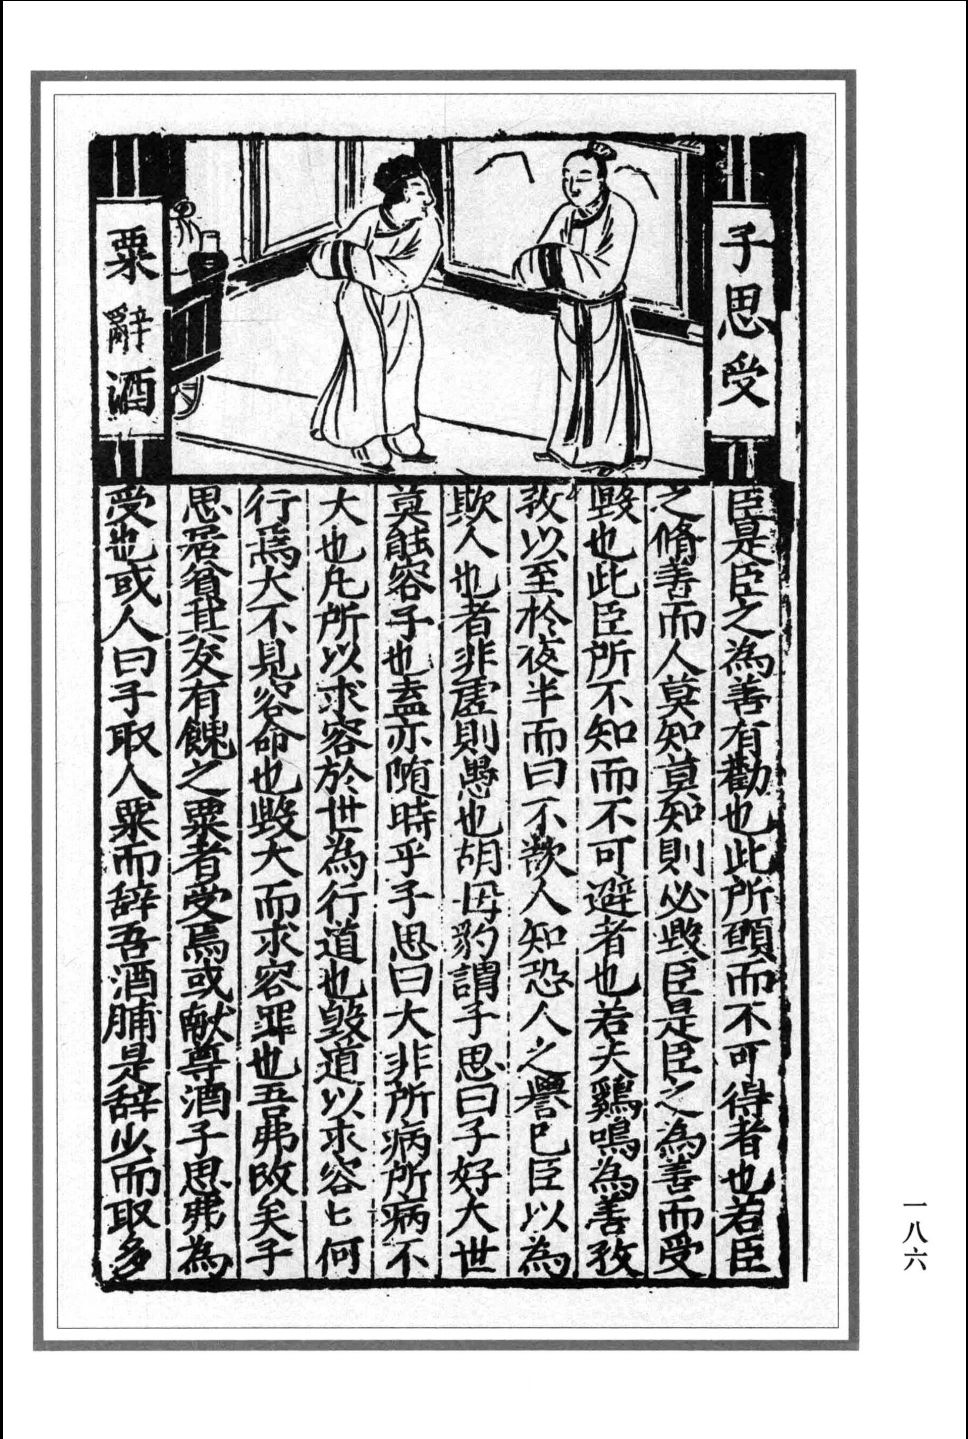 子思受
粟辭酒
臣是臣之為善有勸也此所願而不可得者也若臣
之脩善而人莫知莫知則必毀臣是臣之為善而受
毀也此臣所不知而不可避者也若夫鷄鳴為善孜
孜以至於夜半而曰不欲人知恐人之譽已臣以為
欺人也者非虛則愚也胡毋豹謂子思曰子好大世
莫能容子也盍亦随時乎子思曰大非所病所病不
大也凡所以求容於世為行道也毀道以求容匕何
行焉大不見容命也毀大而求容罪也吾弗改矣子
思居貧其友有餽之粟者受焉或献尊酒子思弗為
受也或人曰子取人粟而辞吾酒脯是辞少而取多
一八六